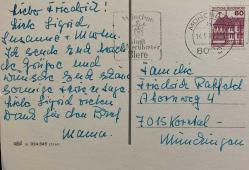 Lieber Friedrich!
Liebe Sigrid,
Susanne + Martin.
Ich sende Euch herzl.
che Grüsse und
wünsche Euch
sonnige Tage.
Liebe Sigrid vielen
Dank für den Brief
Mama.
München
Biere
MÜNCHEN
80
60
Familie
Friedrich Rahfeld
Ahornweg 4
7015 Korntal-
Münchingen